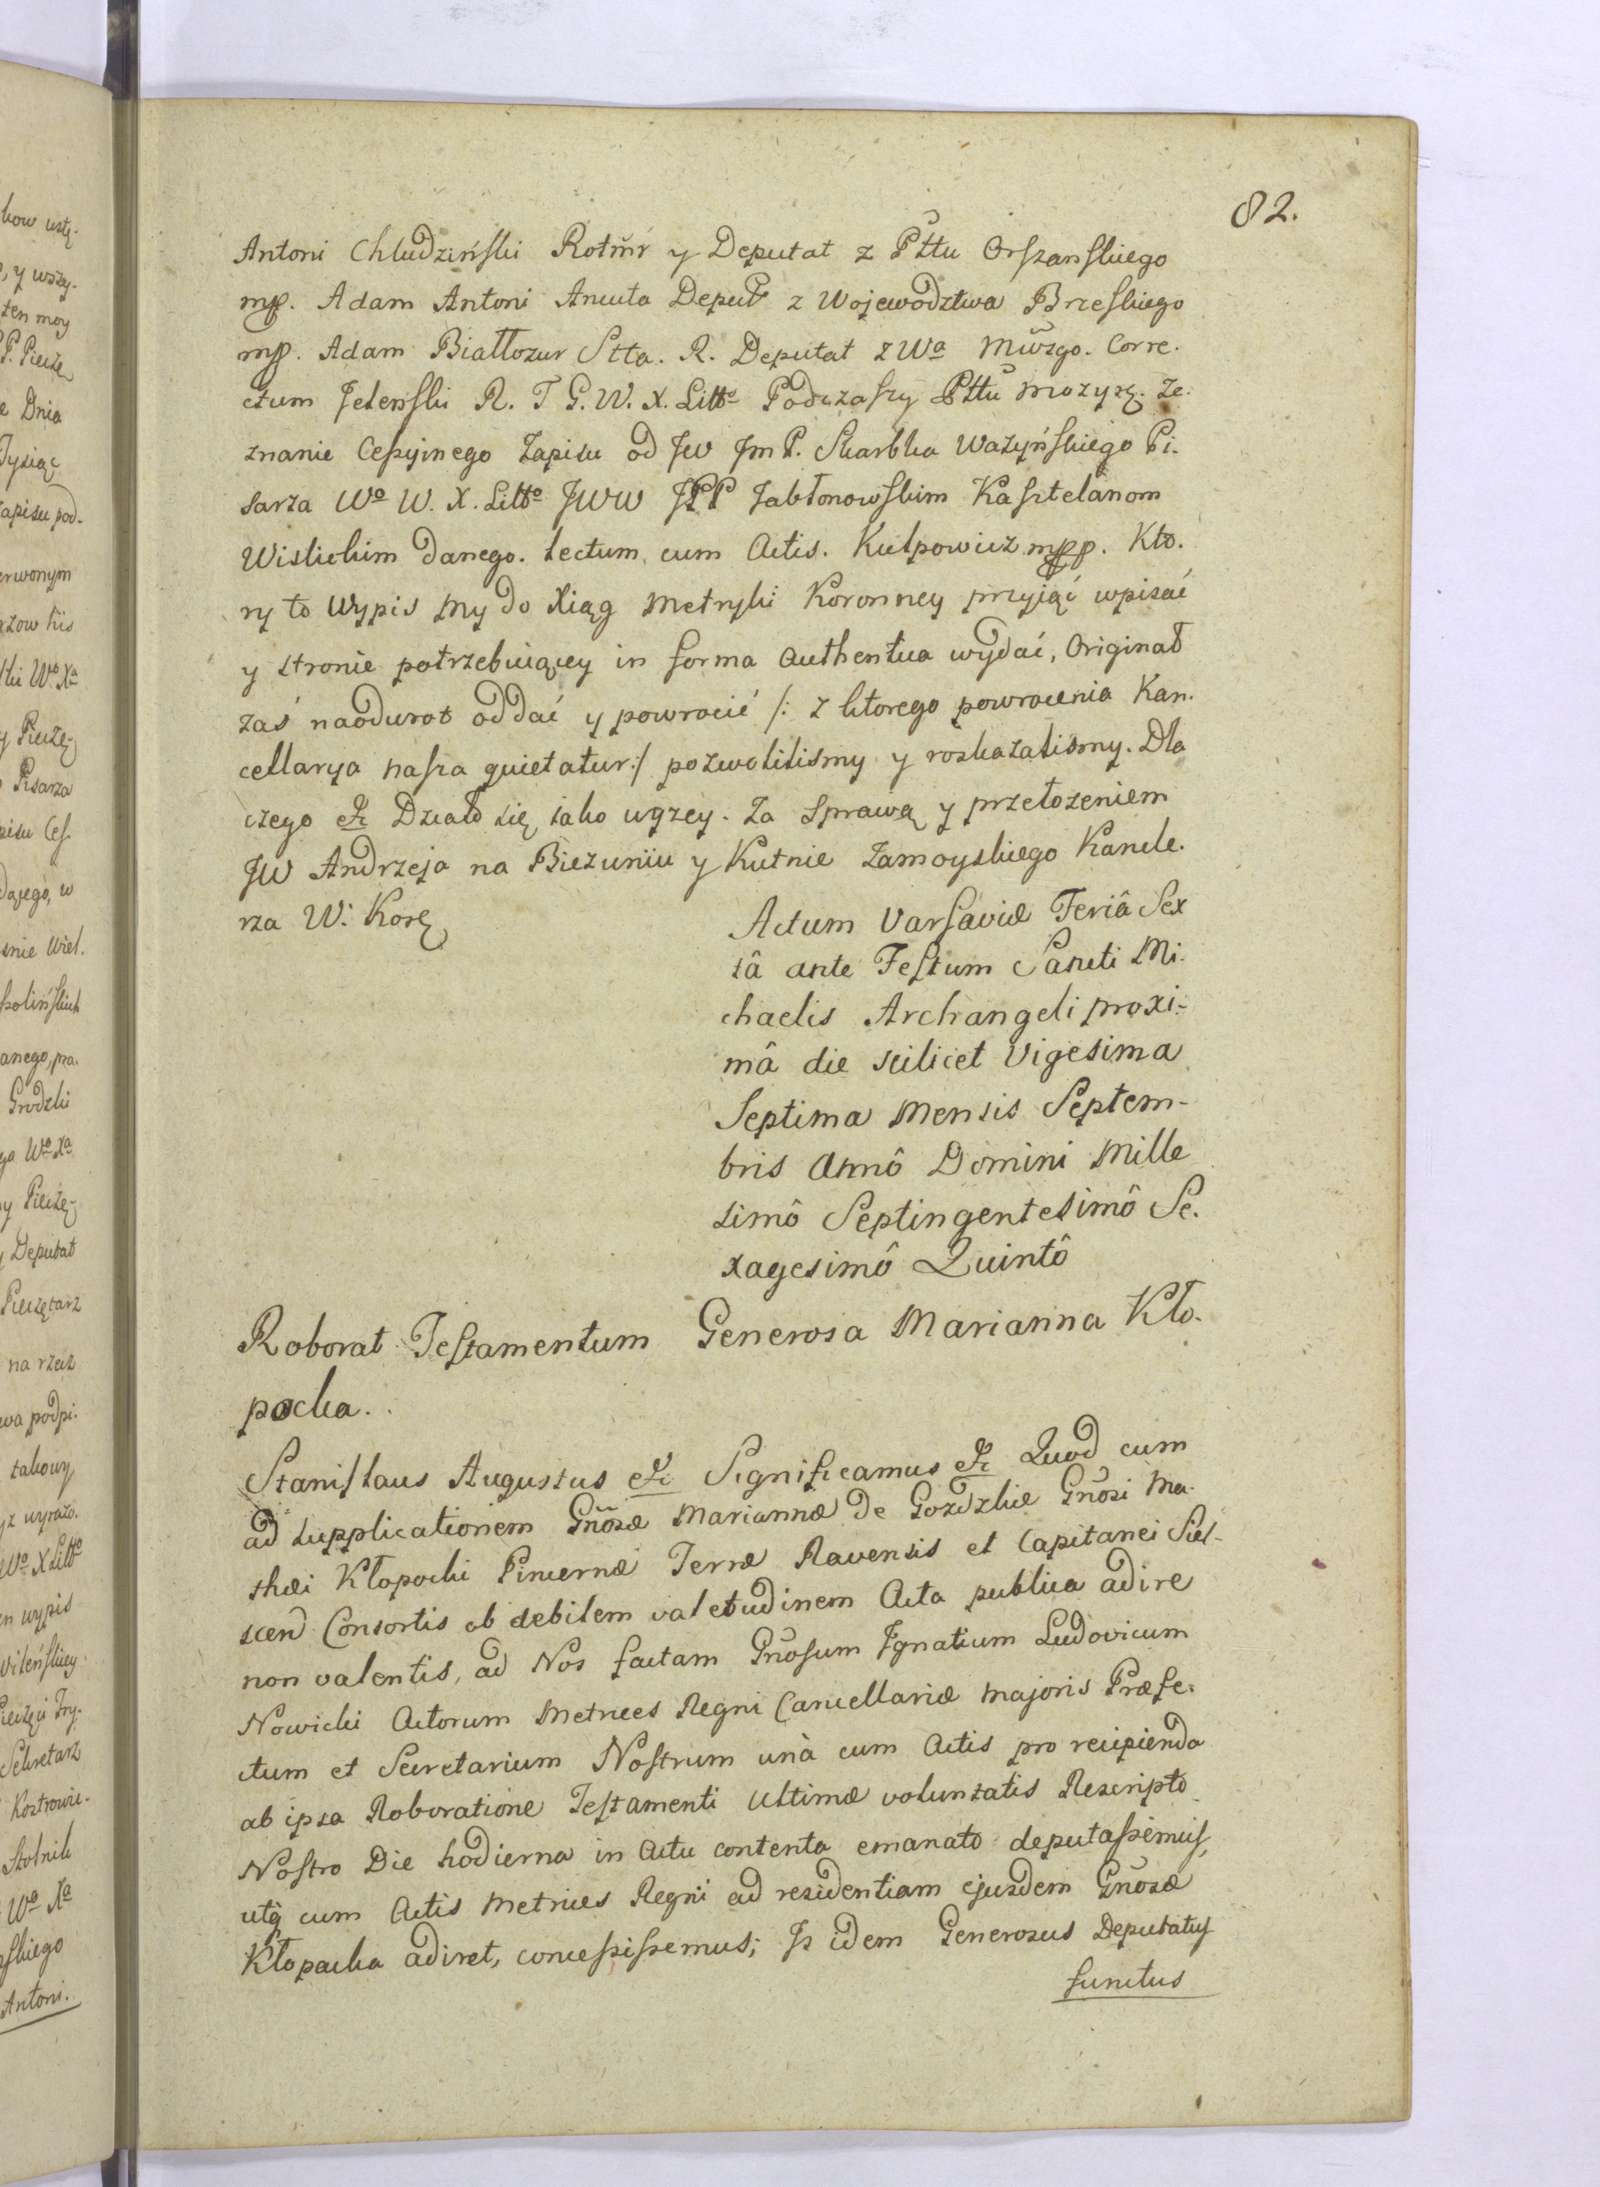 82.
Antoni Chludzinski Rotm̃r y Deputat z Pttu Orszanskiego
mp. Adam Antoni Ancuta Deput z Wojewodztwa Brzeskiego
mp. Adam Białłozur Stta. R. Deputat z Wa Mw̃zgo. Corre-
ctum Jelenski R. T G. W. X. Litto Podczaszy Pttu Mozyrę. Ze-
znanie Cessyinego Zapisu od JW Jm P. Skarbka Wazyńskiego Pi-
sarza Wo W. X. Litto JWW JPP Jabłonowskim Kasztelanom
Wislickim danego. lectum cum Actis. Kielpowicz mpp. Kto-
ry to Wypis my do Xiąg Metryki Koronney przyiąć wpisać
y stronie potrzebuiącey in forma Authentica wydać, Originał
zaś naodwrot oddać y powrocić /: z ktorego powrocenia Kan-
cellarya nasza quietatur :/ pozwolilismy y roskazalismy. Dla
czego &c Działo się iako wyzey. Za Sprawą y przełozeniem
JW Andrzeja na Biezuniu y Kutnie Zamoyskiego Kancle-
rza W: Korę
Actum Varsaviæ Feriâ Sex
tâ ante Festum Sancti Mi-
chaelis Archangeli proxi-
mâ die scilicet Vigesima
Septima Mensis Septem-
bris Annô Domini Mille
simô Septingentesimô Se-
xagesimô Quintô
Roborat Testamentum Generosa Marianna Kło-
pocka..
Stanislaus Augustus &c Significamus &c Quod cum
ad supplicationem Gñosæ Mariannæ de Gozdzkie Gñosi Ma-
thæi Kłopocki Pincernæ Terræ Ravensis et Capitanei Siel-
scen Consortis ob debilem valetudinem Acta publica adire
non valentis, ad Nos factam Gñosum Ignatium Ludovicum
Nowicki Actorum Metrices Regni Cancellariæ Majoris Præfe-
ctum et Secretarium Nostrum unà cum Actis pro recipienda
ab ipsa Roboratione Testamenti Ultimæ voluntatis Rescripto
Nostro Die hodierna in Actu contenta emanato deputassemus,
utq cum Actis Metrices Regni ad residentiam ejusdem Gñosæ
Kłopacka adiret, concessissemus; Is idem Generosus Deputatus
functus